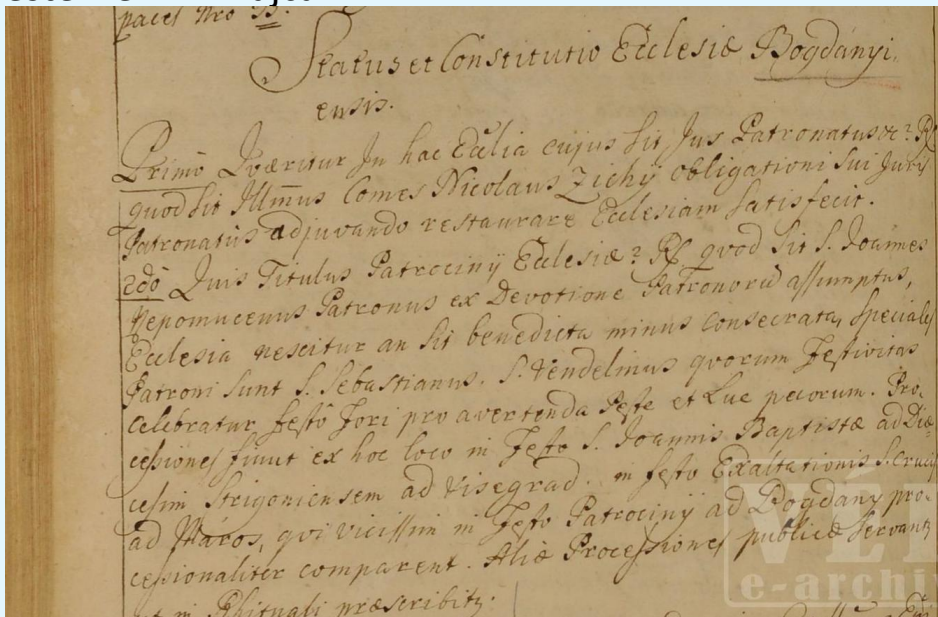 paces Nro B.
Status et Constitutio Ecclesiæ Bogdányi
ensis.
Primò Qværitur Jn hac Ecclia cujus sit Jus Patronatus &c? R
quod sit Jllmus Comes Nicolaus Zichÿ obligationi sui Juris
Patronatûs adjuvando restaurare Ecclesiam satisfecit.
2dò Quis Titulus Patrocinÿ Ecclesiæ? R qvod sit S. Joannes
Nepomucenus Patronus ex Devotione Patronorū assumptus,
Ecclesia nescitur an sit benedicta minus consecrata, speciales
Patroni sunt S. Sebastianus. S. Vendelinus qvorum Festivitas
Celebratur festô Fori pro avertenda Peste et Lue pecorum. Pro-
cessiones fiunt ex hoc loco in Festo S. Joannis Baptistæ ad Diæ-
cesim Strigoniensem ad Visegrad. in festo Exaltationis S. Crucis
ad Máros, qvi vicissim in Festo Patrocinÿ ad Bogdany pro-
cessionaliter comparent. Aliæ Processiones publicæ servantz
ut in Rhituali præscribitz.
VÉ
e-archi